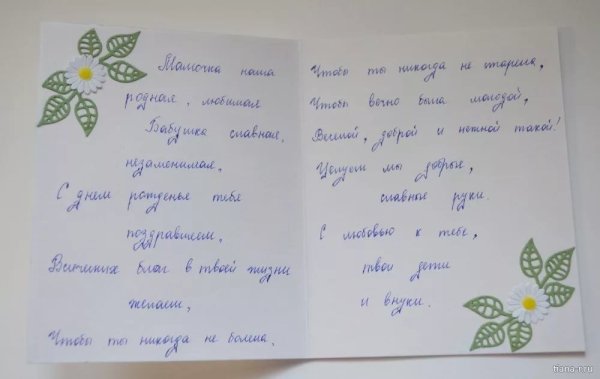 Мамочка наша
родная, любимая
Бабушка славная,
незаменимая,
С днем рожденье тебя
поздравляем,
Всяческих благ в твоей жизни
желаем,
Чтобы ты никогда не болела,
Чтобы ты никогда не старела,
Чтобы вечно была молодой,
Веселой, доброй и нежной такой!
Целуем мы добрые,
славные руки.
С любовью к тебе,
твои дети
и внуки.
hana-r.ru